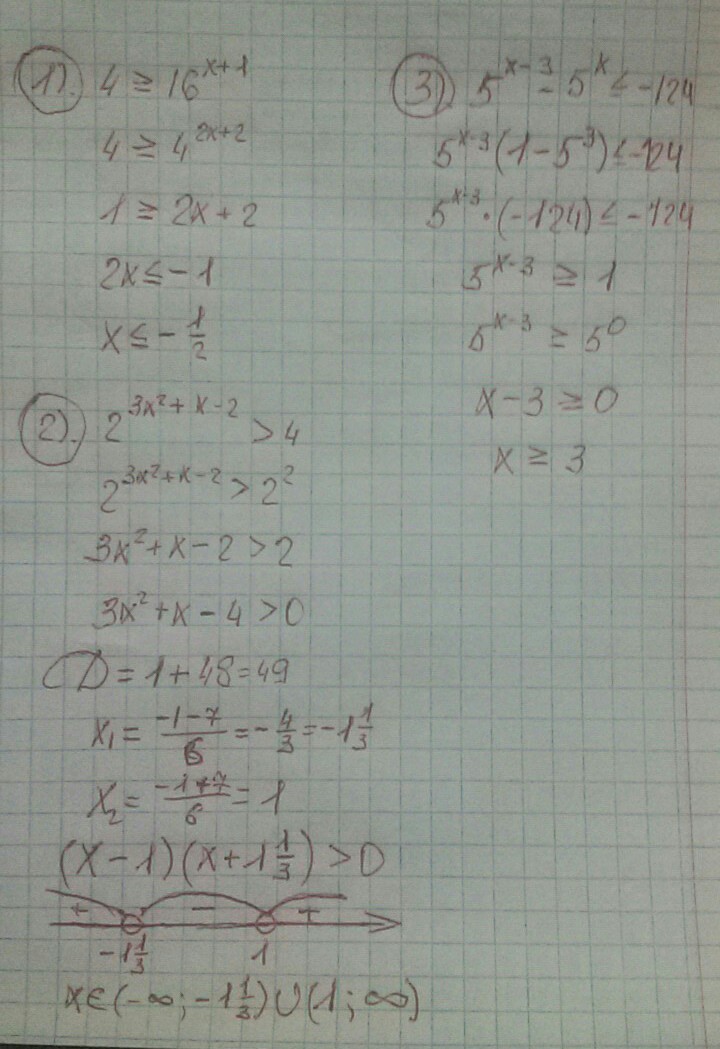 1). 4 ≥ 16^(x+1)
4 ≥ 4^(2x+2)
1 ≥ 2x + 2
2x ≤ -1
x ≤ -1/2
2). 2^(3x²+x-2) > 4
2^(3x²+x-2) > 2²
3x² + x - 2 > 2
3x² + x - 4 > 0
D = 1 + 48 = 49
x₁ = (-1-7)/6 = -4/3 = -1 1/3
x₂ = (-1+7)/6 = 1
(x - 1)(x + 1 1/3) > 0
+ - +
-1 1/3 1
x ∈ (-∞; -1 1/3) ∪ (1; ∞)
3). 5^(x-3) - 5^x ≤ -124
5^(x-3) (1 - 5³) ≤ -124
5^(x-3) · (-124) ≤ -124
5^(x-3) ≥ 1
5^(x-3) ≥ 5⁰
x - 3 ≥ 0
x ≥ 3